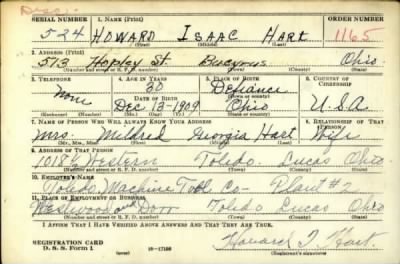 Disc.
SERIAL NUMBER 1. NAME (Print) ORDER NUMBER
524 HOWARD ISAAC HART 1165
(First) (Middle) (Last)
2. ADDRESS (Print)
513 Hopley St. Bucyrus Ohio
(Number and street or R. F. D. number) (Town) (County) (State)
3. TELEPHONE 4. AGE IN YEARS 5. PLACE OF BIRTH 6. COUNTRY OF CITIZENSHIP
None 30 Defiance
DATE OF BIRTH (Town or county)
Dec 13-1909 Ohio U.S.A
(Mo.) (Day) (Yr.) (State or country)
7. NAME OF PERSON WHO WILL ALWAYS KNOW YOUR ADDRESS 8. RELATIONSHIP OF THAT PERSON
Mrs. Mildred Georgia Hart Wife
(Mr., Mrs., Miss) (First) (Middle) (Last)
9. ADDRESS OF THAT PERSON
1018 1/2 Western Toledo. Lucas Ohio
(Number and street or R. F. D. number) (Town) (County) (State)
10. EMPLOYER'S NAME
Toledo Machine Tool Co- Plant #2
11. PLACE OF EMPLOYMENT OR BUSINESS
Westwood and Dorr Toledo Lucas Ohio
(Number and street or R. F. D. number) (Town) (County) (State)
I AFFIRM THAT I HAVE VERIFIED ABOVE ANSWERS AND THAT THEY ARE TRUE.
REGISTRATION CARD
D. S. S. Form 1 16-17105 Howard I. Hart.
(Registrant's signature)